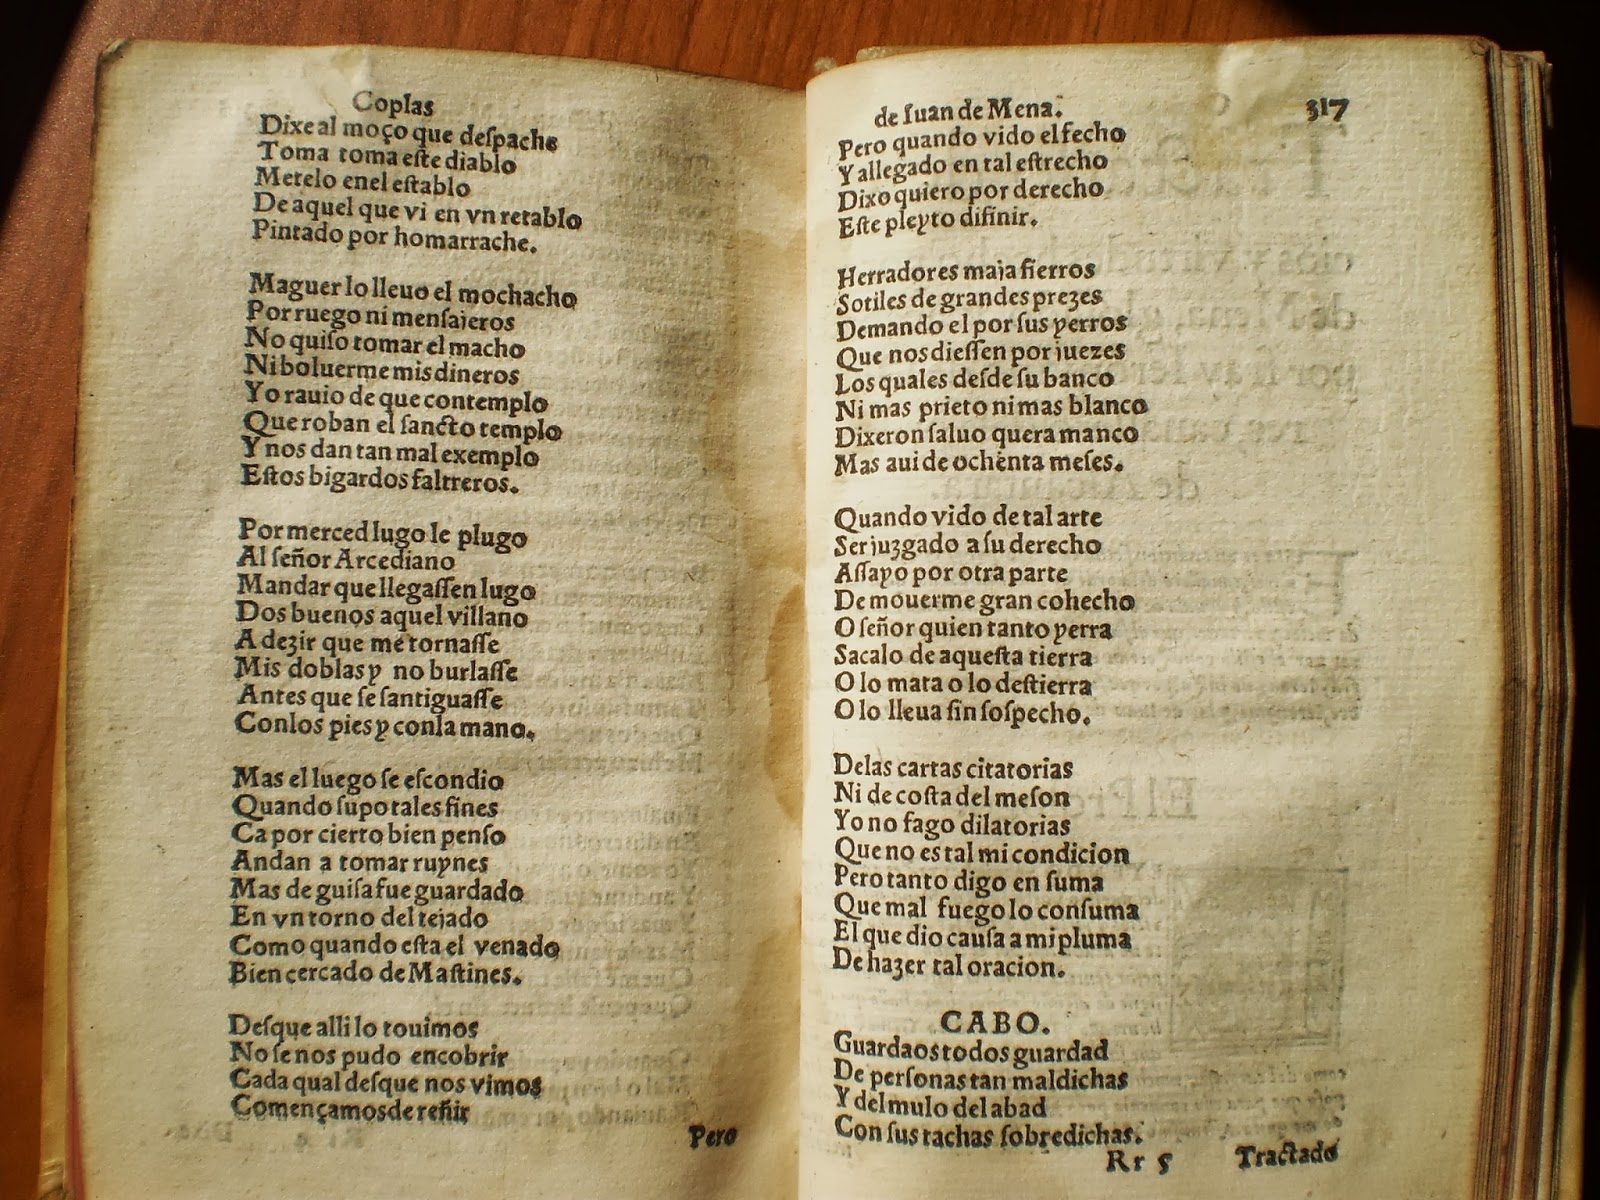 Coplas
Dixe al moço que deſpache
Toma toma eſte diablo
Metelo enel eſtablo
De aquel que vi en vn retablo
Pintado por homarrache.
Maguer lo lleuo el mochacho
Por ruego ni menſajeros
No quiſo tomar el macho
Ni boluerme mis dineros
Yo rauio de que contemplo
Que roban el ſancto templo
Y nos dan tan mal exemplo
Eſtos bigardos faltreros.
Por merced lugo le plugo
Al ſeñor Arcediano
Mandar que llegaſſen lugo
Dos buenos aquel villano
A dezir que me tornaſſe
Mis doblas y no burlaſſe
Antes que ſe ſantiguaſſe
Conlos pies y conla mano.
Mas el luego ſe eſcondio
Quando ſupo tales fines
Ca por cierto bien penſo
Andan a tomar ruynes
Mas de guiſa fue guardado
En vn torno del tejado
Como quando eſta el venado
Bien cercado de Maſtines.
Deſque alli lo touimos
No ſe nos pudo encobrir
Cada qual deſque nos vimos
Començamos de reñir
Pero
de Iuan de Mena.
317
Pero quando vido el fecho
Y allegado en tal eſtrecho
Dixo quiero por derecho
Eſte pleyto difinir.
Herradores maja fierros
Sotiles de grandes prezes
Demando el por ſus yerros
Que nos dieſſen por juezes
Los quales deſde ſu banco
Ni mas prieto ni mas blanco
Dixeron ſaluo quera manco
Mas aui de ochenta meſes.
Quando vido de tal arte
Ser juzgado a ſu derecho
Aſſayo por otra parte
De mouerme gran cohecho
O ſeñor quien tanto yerra
Sacalo de aqueſta tierra
O lo mata o lo deſtierra
O lo lleua ſin ſoſpecho.
Delas cartas citatorias
Ni de coſta del meſon
Yo no fago dilatorias
Que no es tal mi condicion
Pero tanto digo en ſuma
Que mal fuego lo conſuma
El que dio cauſa a mi pluma
De hazer tal oracion.
CABO.
Guardaos todos guardad
De perſonas tan maldichas
Y del mulo del abad
Con ſus tachas ſobredichas.
Rr 5 Tractado